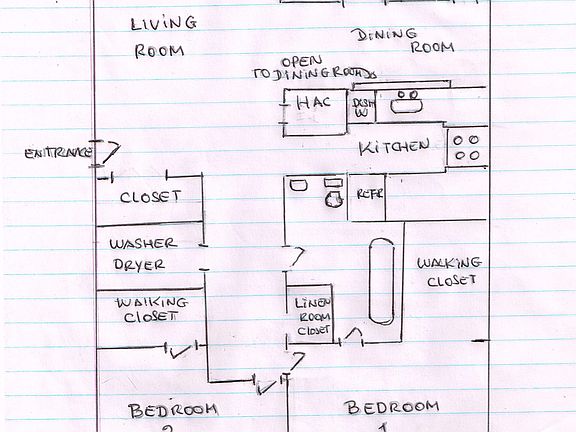 LIVING
ROOM
DINING
ROOM
OPEN
TO DINING ROOM
HAC
DISH
W
ENTRANCE
KITCHEN
CLOSET
REFR
WASHER
DRYER
WALKING
CLOSET
WALKING
CLOSET
LINEN
ROOM
CLOSET
BEDROOM
2
BEDROOM
1